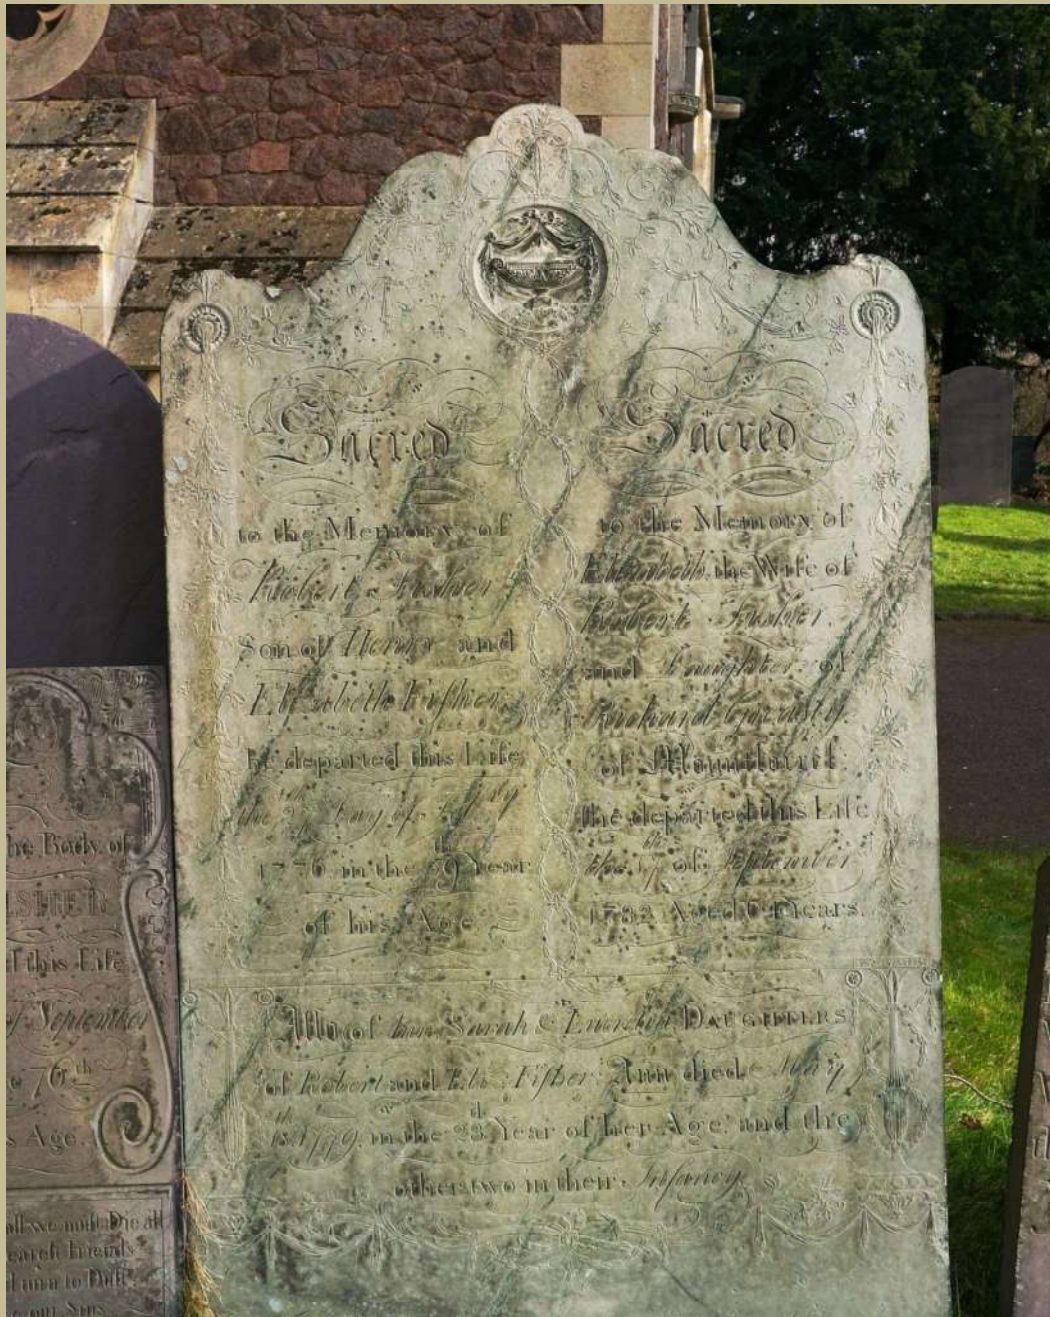 Sacred
to the Memory of
Robert Fisher
Son of Henry and
Elizabeth Fisher,
he departed this Life
the day of July
1776 in the Year
of his Age
Sacred
to the Memory of
Elizabeth the Wife of
Robert Fisher,
and Daughter of
Richard
of
she departed this Life
the 17th of September
1782 Aged Years.
Also of Ann Sarah & DAUGHTERS
of Robert and Eliz: Fisher: Ann died May
18th 1779, in the 23d Year of her Age: and the
other two in their Infancy
he Body of
ESTHER
this Life
of September
e 76th
s Age.
all we must Die all
Friends
turn to Dust
our Sins